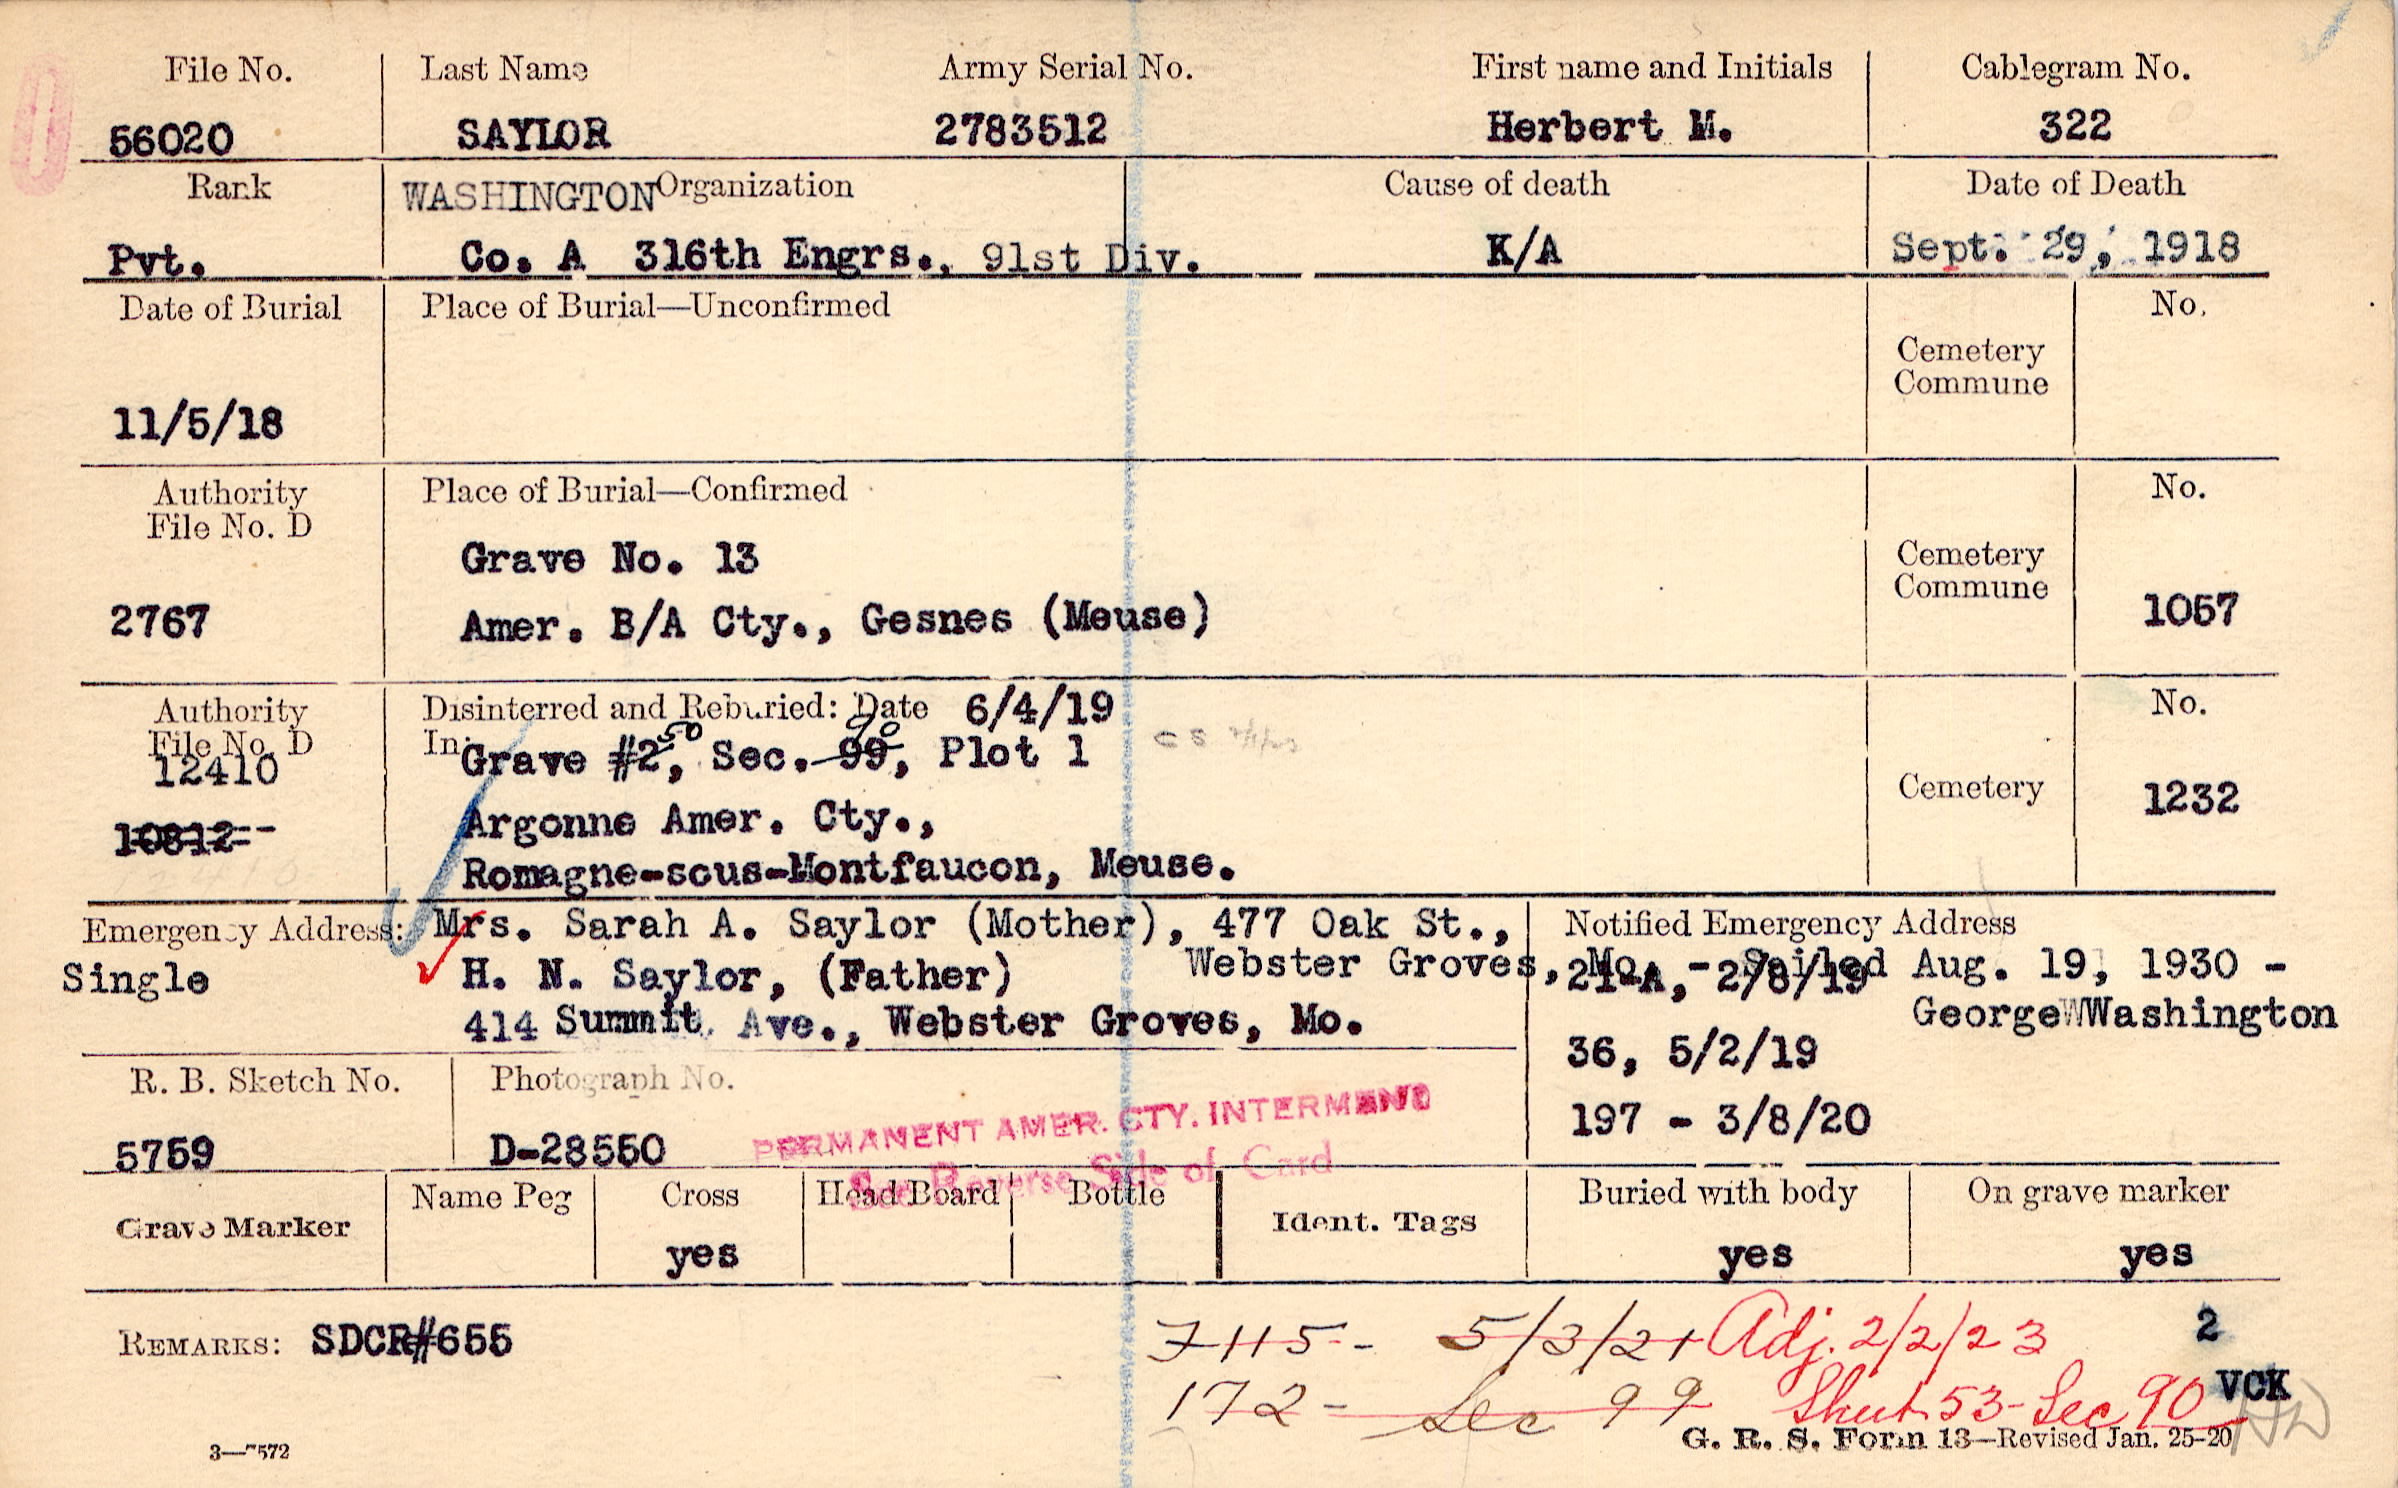 File No. Last Name Army Serial No. First name and Initials Cablegram No.
56020 SAYLOR 2783512 Herbert M. 322
Rank WASHINGTON Organization Cause of death Date of Death
Pvt. Co. A 316th Engrs., 91st Div. K/A Sept. 29, 1918
Date of Burial Place of Burial—Unconfirmed No.
Cemetery
Commune
11/5/18
Authority Place of Burial—Confirmed No.
File No. D
Grave No. 13 Cemetery
Commune
2767 Amer. B/A Cty., Gesnes (Meuse) 1057
Authority Disinterred and Reburied: Date 6/4/19 No.
File No. D In Grave #2, 50 Sec. 99, 90 Plot 1
12410 Cemetery 1232
10812 Argonne Amer. Cty.,
Romagne-sous-Montfaucon, Meuse.
Emergency Address: Mrs. Sarah A. Saylor (Mother), 477 Oak St., Notified Emergency Address
Webster Groves, Mo. - Sailed Aug. 19, 1930 -
Single H. N. Saylor, (Father) 21-A, 2/8/19
George Washington
414 Summit Ave., Webster Groves, Mo.
36, 5/2/19
R. B. Sketch No. Photograph No.
197 - 3/8/20
PERMANENT AMER. CTY. INTERMENT
5759 D-28550
See Reverse Side of Card
Grave Marker Name Peg Cross Head Board Bottle Ident. Tags Buried with body On grave marker
yes yes yes
REMARKS: SDCR#655 7115- 5/3/21 Adj. 2/2/23 2
172- Sec 99 Shut 53- Sec 90 VCK
3—7572 G. R. S. Form 13—Revised Jan. 25-20